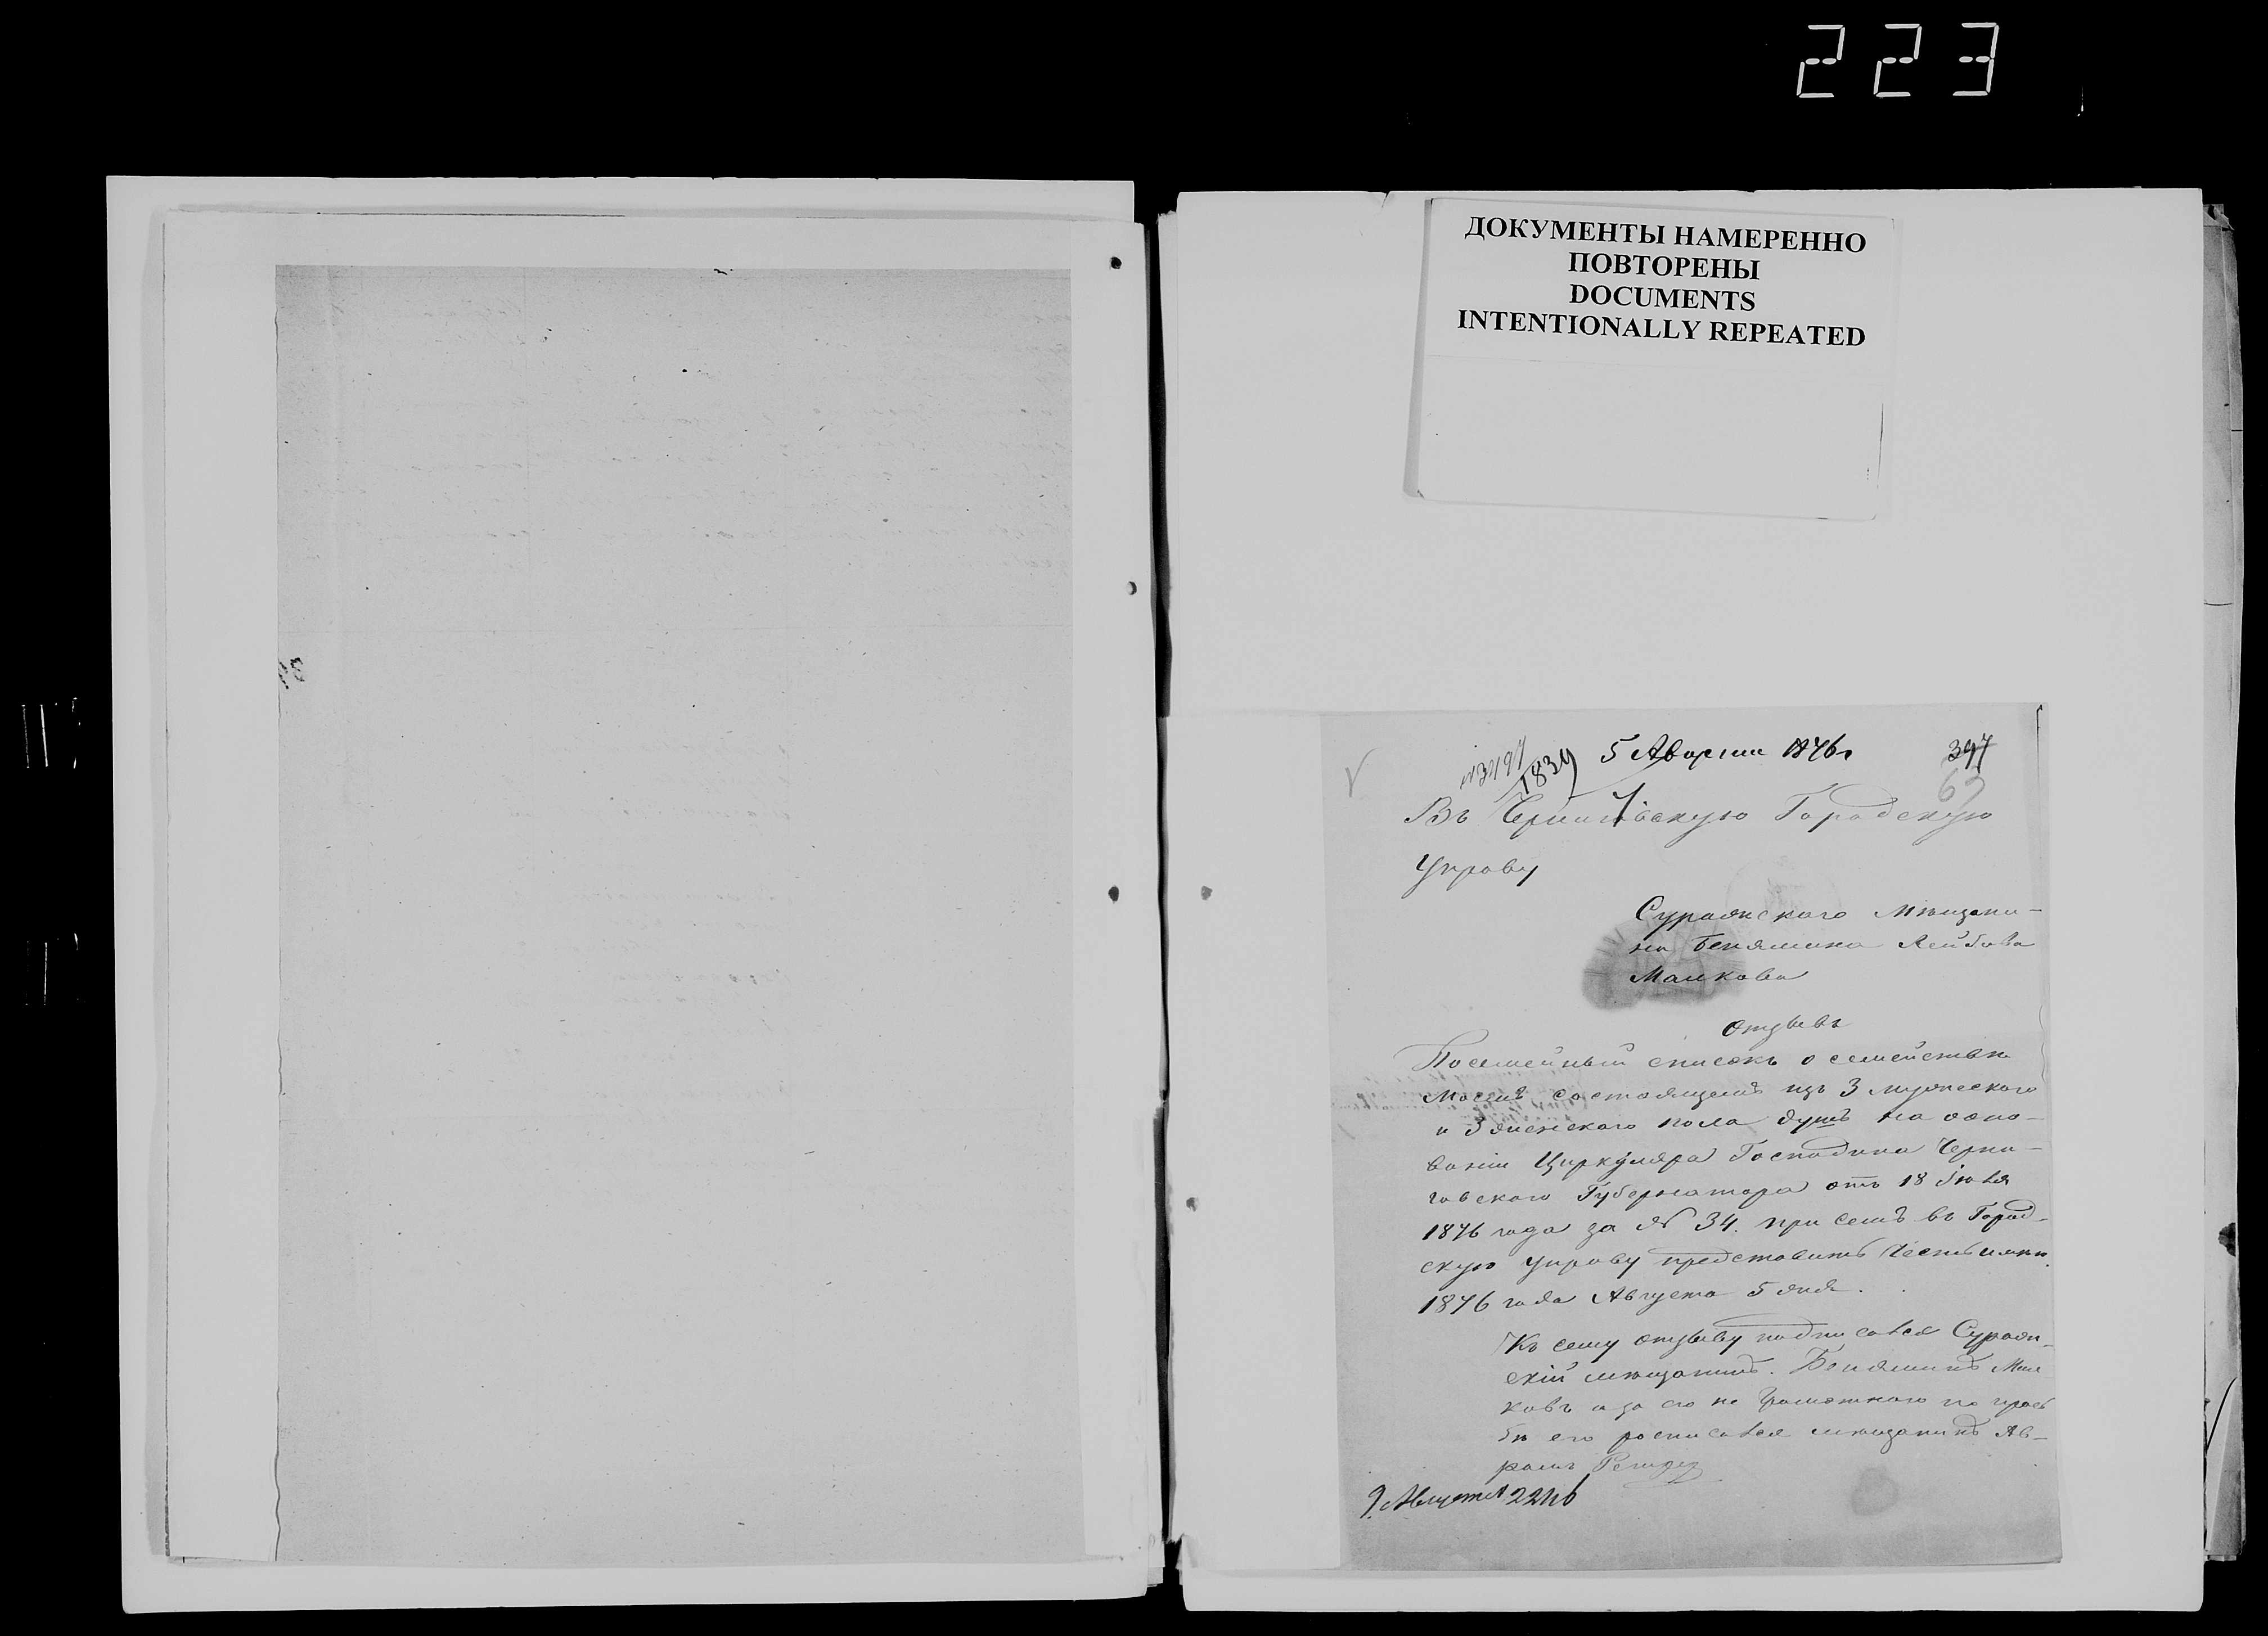 223
ДОКУМЕНТЫ НАМЕРЕННО
ПОВТОРЕНЫ
DOCUMENTS
INTENTIONALLY REPEATED
5 Августа 1876 г
397
№3497
1839
63
Въ Черниговскую Городскую
Управу
Суражскаго мѣщани-
на Бенямина Лейбова
Малкова
Отзывъ
Посемейный списокъ о семействѣ
моемъ состоящемъ изъ 3 мужескаго
и 3 женскаго пола душъ на осно-
ваніи Циркуляра Господина Черни-
говскаго Губернатора отъ 18 Іюля
1876 года за № 34. при семъ въ Город-
скую управу представить честь имѣю.
1876 года Августа 5 дня.
Къ сему отзыву подписался Сураж-
скій мѣщанинъ. Беняминъ Мал
ковъ а за его не грамотного по прось
бѣ его росписался мѣщанинъ Ав-
рамъ
9 Августа 2246